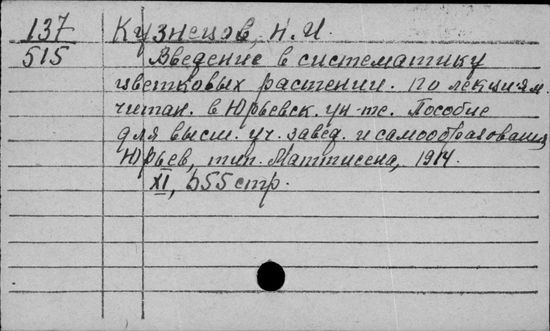 137 Кузнецов, Н. И.
515 Введение в систематику
цветковых растений. По лекциям.
читан. в Юрьевск. ун-те. Пособие
для высш. уч. завед. и самообразования
Юрьев, тип. Маттисена, 1914.
XI, 555 стр.